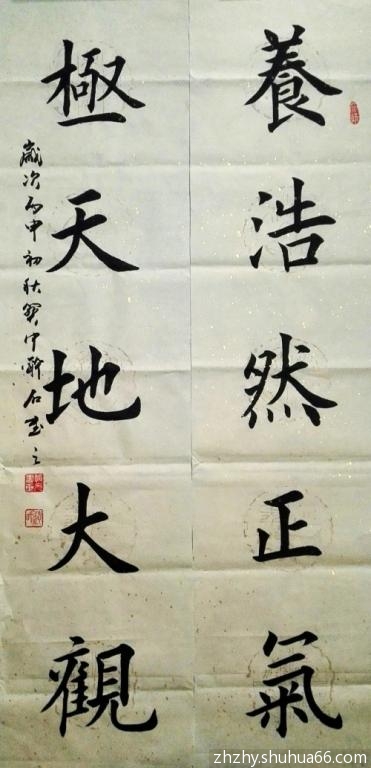 養浩然正氣
極天地大觀
歲次丙申初秋
石書之
zhzhy.shuhua66.com